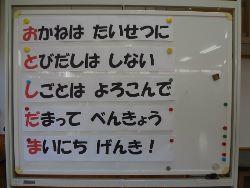 おかねは たいせつに
とびだしは しない
しごとは よろこんで
だまって べんきょう
まいにち げんき！